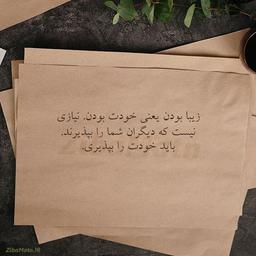 زیبا بودن یعنی خودت بودن. نیازی
نیست که دیگران شما را بپذیرند.
باید خودت را بپذیری.
ZibaMatn.IR